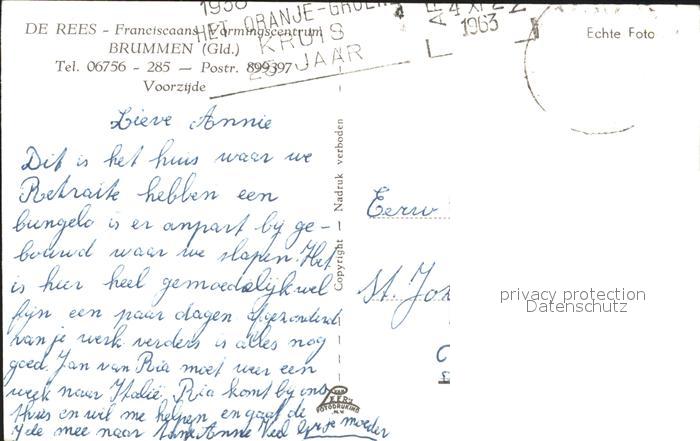 DE REES - Franciscaans Vormingscentrum
BRUMMEN (Gld.)
Tel. 06756 - 285 — Postr. 899397
Voorzijde
1938
HET ORANJE-GROENE
KRUIS
25 JAAR
4 XI 22
1963
Echte Foto
Lieve Annie
Dit is het huis waar we
Retraite hebben een
bungelo is er anpart bij ge-
bouwd waar we slapen. Het
is hier heel gemoedelijk wel
fijn een paar dagen afgezonderd
van je werk verders is alles nog
goed. Jan van Ria moet weer een
week naar Italië, Ria komt bij ons
thuis en wil me helpen en gaat de
7de mee naar Anne Vel moeder
Copyright — Nadruk verboden
VAN LEER'S
FOTODRUKIND.
N.V.
Eerw
St. Joz
privacy protection
Datenschutz